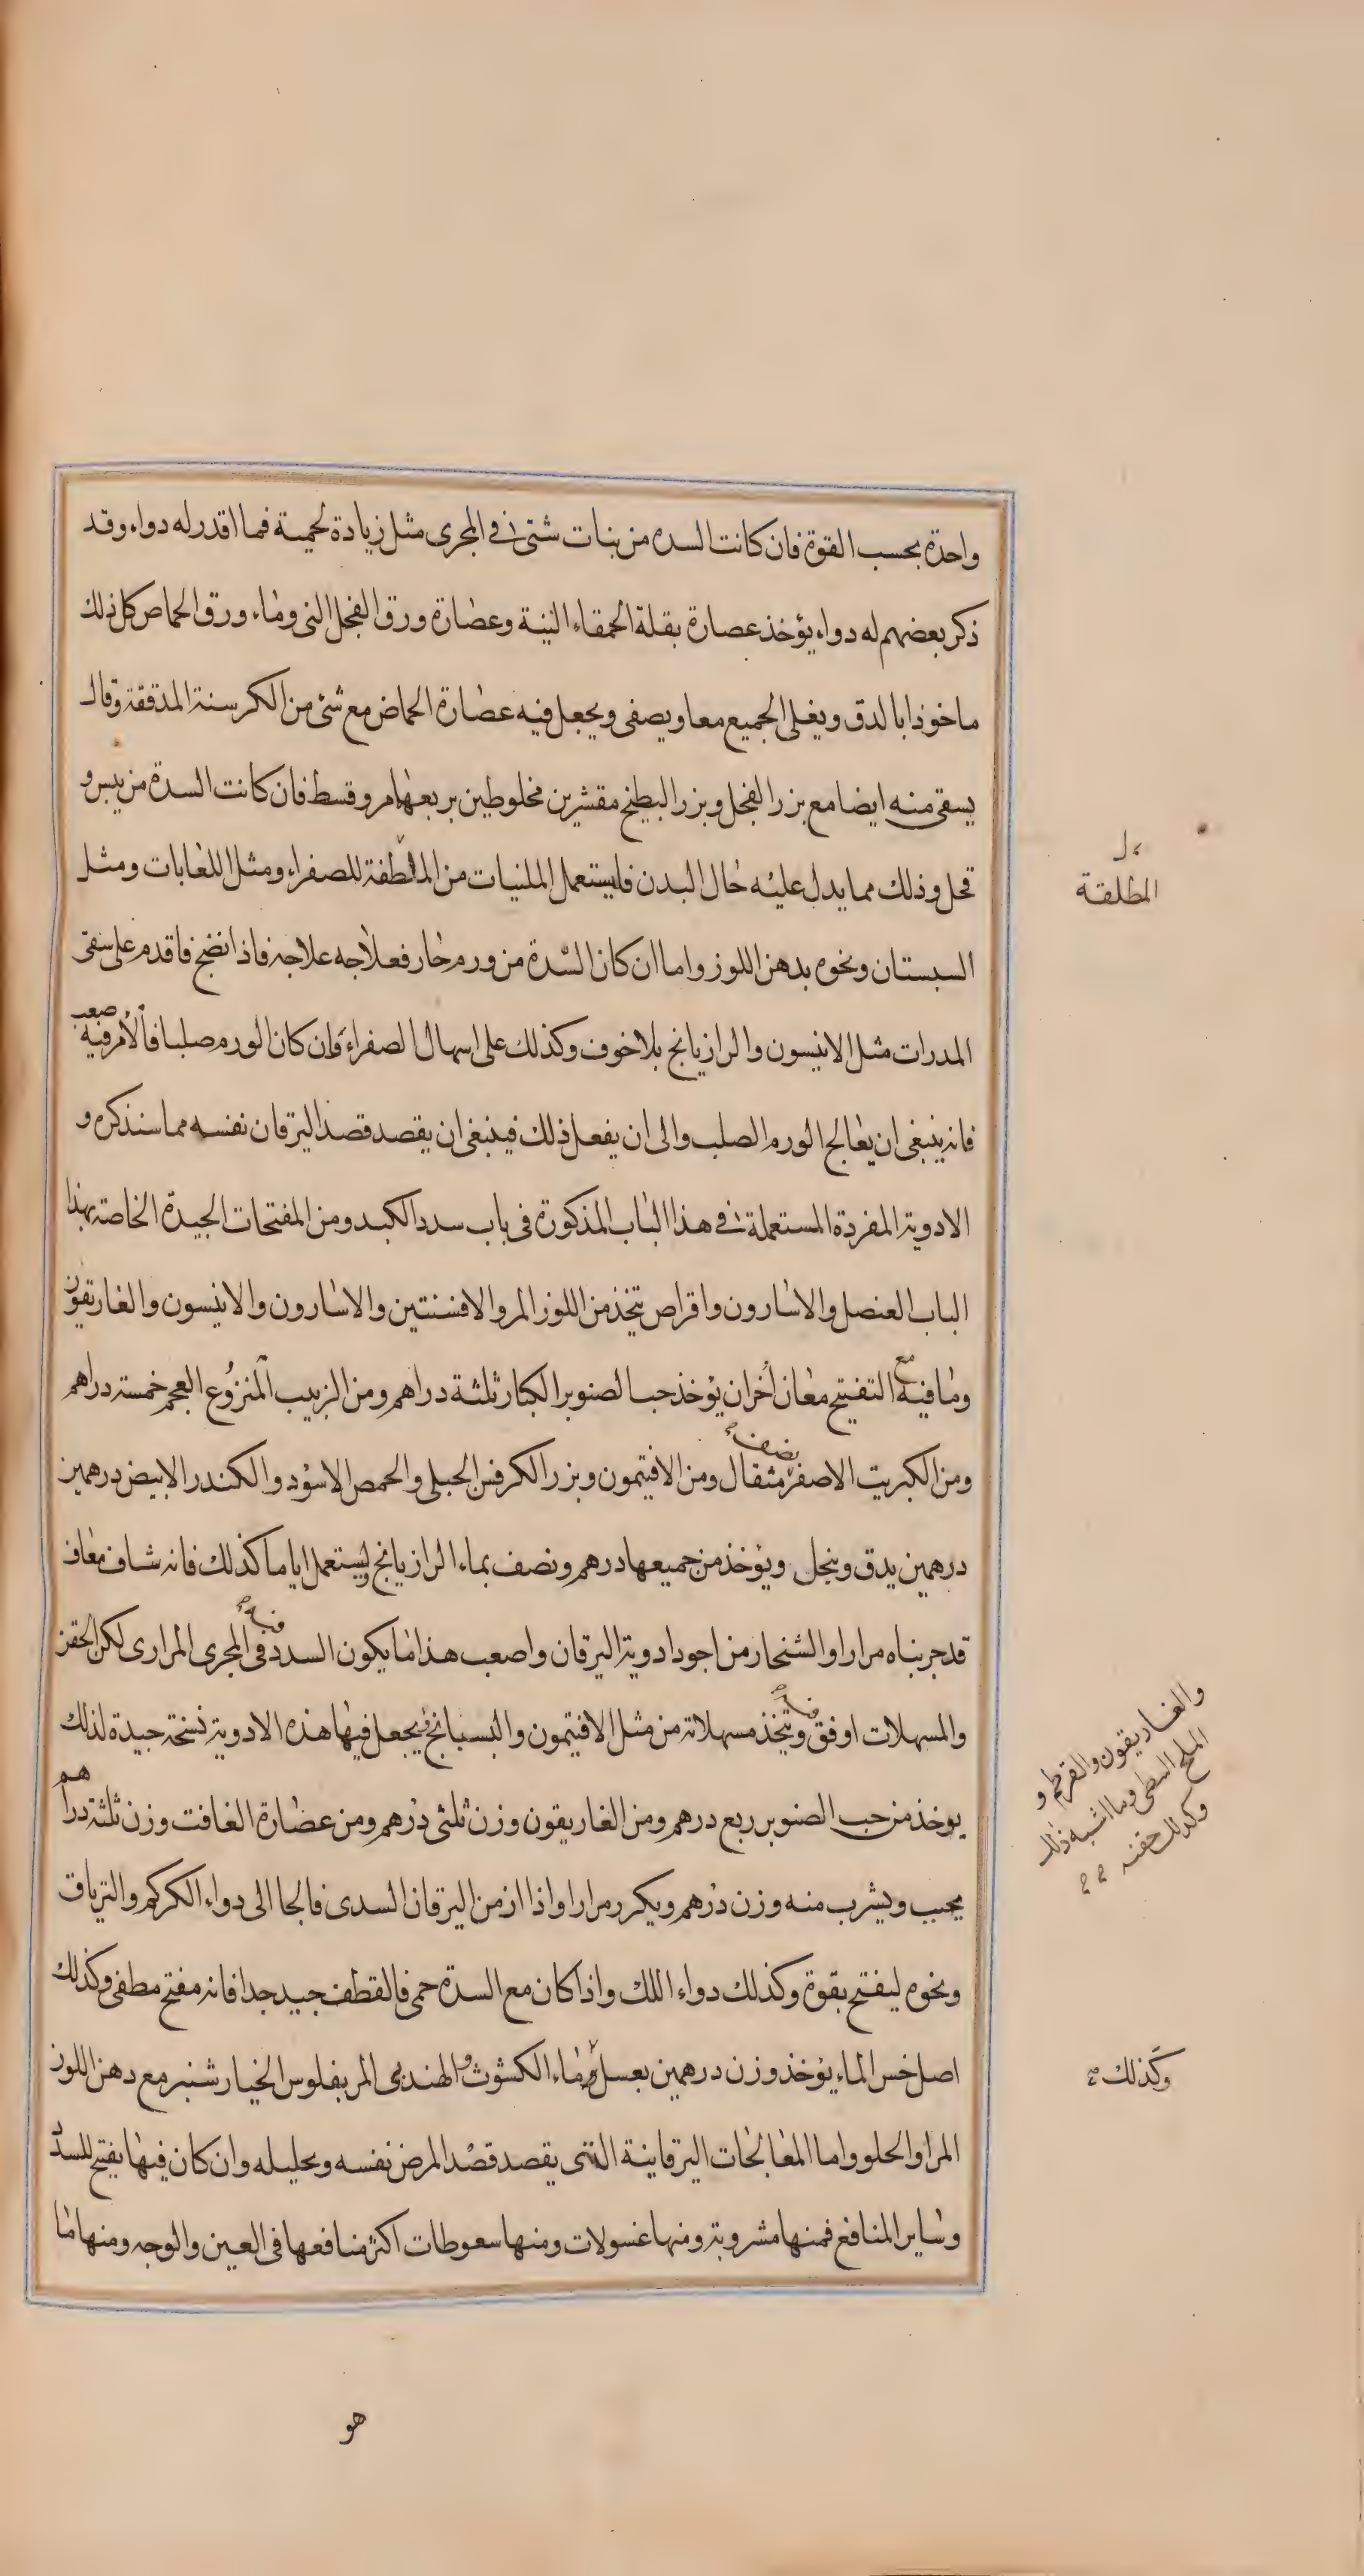 واحدة بحسب القوة فان كانت السدة من بنات شتى فى المجرى مثل زيادة لحمية فما اقدر له دواء وقد
ذكر بعضهم له دواء يؤخذ عصارة بقلة الحمقاء النية وعصارة ورق الفجل النى وماء ورق الحماص كل ذلك
ماخوذا بالدق ويغلى الجميع معا ويصفى ويجعل فيه عصارة الحماض مع شئ من الكرسنة المدققة وقال
يسقى منه ايضا مع بزر الفجل وبزر البطيخ مقشرين مخلوطين بربعهامر وقسط فان كانت السدة من يبس و
قحل وذلك مما يدل عليه حال البدن فليستعمل الملنيات من الملطفة للصفراء ومثل اللعابات ومثل
المطلقة
السبستان ونحوه بدهن اللوز واما ان كان السدة من ورم حار فعلاجه علاجه فاذا نضج فاقدم على سقى
المدرات مثل الانيسون والرازيانج بلا خوف وكذلك على اسهال الصفراء وان كان الورم صلبا فالامر فيه صعب
فانه ينبغى ان يعالج الورم الصلب والى ان يفعل ذلك فينبغى ان يقصد قصد اليرقان نفسه مما سنذكره و
الادوية المفردة المستعملة فى هذا الباب المذكورة فى باب سدد الكبد ومن المفتحات الجيدة الخاصة بهذا
الباب العنصل والاسارون واقراص تتخذ من اللوز المر والافسنتين والاسارون والانيسون والغاريقون
وما فيه مع التفتيح معان أخر ان يؤخذ حب الصنوبر الكبار ثلثة دراهم ومن الزبيب المنزوع العجم خمسة دراهم
ومن الكبريت الاصفر نصف مثقال ومن الافتيمون وبزر الكرفس الجبلى والحمص الاسود والكندر الابيض درهمين
درهمين يدق وينخل ويؤخذ من جميعها درهم ونصف بماء الرازيانج ويستعمل اياما كذلك فانه شاف معاف
قد جربناه مرارا والشنجار من اجود ادوية اليرقان واصعب هذا ما يكون السدد فيه فى المجرى المرارى لكن الحقن
والمسهلات اوفق فيه ويتخذ مسهلاته من مثل الافتيمون والبسبانج ويجعل فيها هذه الادوية نسخة جيدة لذلك
والغاريقون والقرطم و
الملح النبطى وما اشبه ذلك
وكذلك حقنه
يوخذ من حب الصنوبر ربع درهم ومن الغاريقون وزن ثلثى درهم ومن عصارة الغافت وزن ثلثة دراهم
يحبب ويشرب منه وزن درهم ويكرر مرارا واذا ازمن اليرقان السدى فالجا الى دواء الكركم والترياق
ونحوه ليفتح بقوة وكذلك دواء اللك واذا كان مع السدة حمى فالقطف جيد جدا فانه مفتح مطفى وكذلك
اصل خس الماء يؤخذ وزن درهمين بعسل وماء الكشوث والهندبى المر بفلوس الخيار شنبر مع دهن اللوز
وكذلك
المر او الحلو واما المعالجات اليرقانية التى يقصد قصد المرض نفسه وتحليله وان كان فيها يفتح للسدد
وساير المنافع فمنها مشروبة ومنها غسولات ومنها سعوطات اكثر منافعها فى العين والوجه ومنها ما
هو